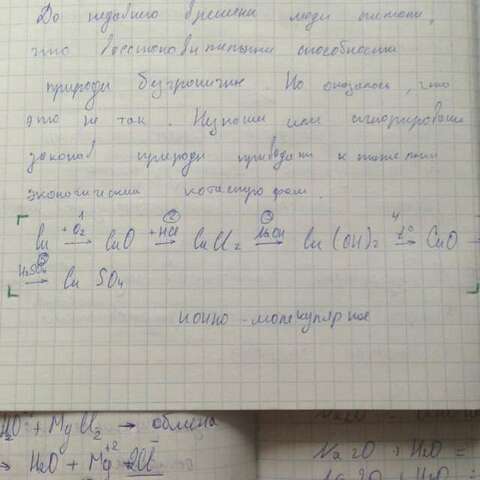 До недавнего времени люди считали,
что восстановительные способности
природы безграничны. Но оказалось, что
это не так. Незнание или игнорирование
законов природы приводят к тяжелым
экологическим катастрофам.
Cu +O₂ 1 → CuO +HCl 2 → CuCl₂ NaOH 3 → Cu(OH)₂ 4 t° → CuO →
H₂SO₄ 5 → CuSO₄
ионно-молекулярное
+ MgCl₂ → обмена
→ H₂O + Mg⁺² 2Cl⁻
Na₂O + H₂O =